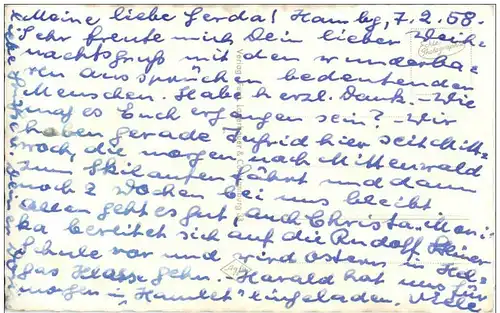 Meine liebe Gerda! Hambg, 7.2.58.
Sehr freute mich Dein lieber Weih-
nachtsgruß mit den wunderba-
ren aussprüchen bedeutenden
Menschen. Habe herzl. Dank. - Wie
mag es Euch ergangen sein? Wir
haben gerade hier seit Mitt-
woch, die morgen nach Mittenwald
zum Skilaufen fährt und dann
noch 2 Wochen bei uns bleibt
allen geht es gut, auch Christa. Moni-
ka bereitet sich auf die Rudolf Steiner
Schule vor und wird Ostern in
Klasse gehn. Harald hat uns für
morgen in "Hamlet" eingeladen. Viele
Echte Photographie
Verlag
Agfa